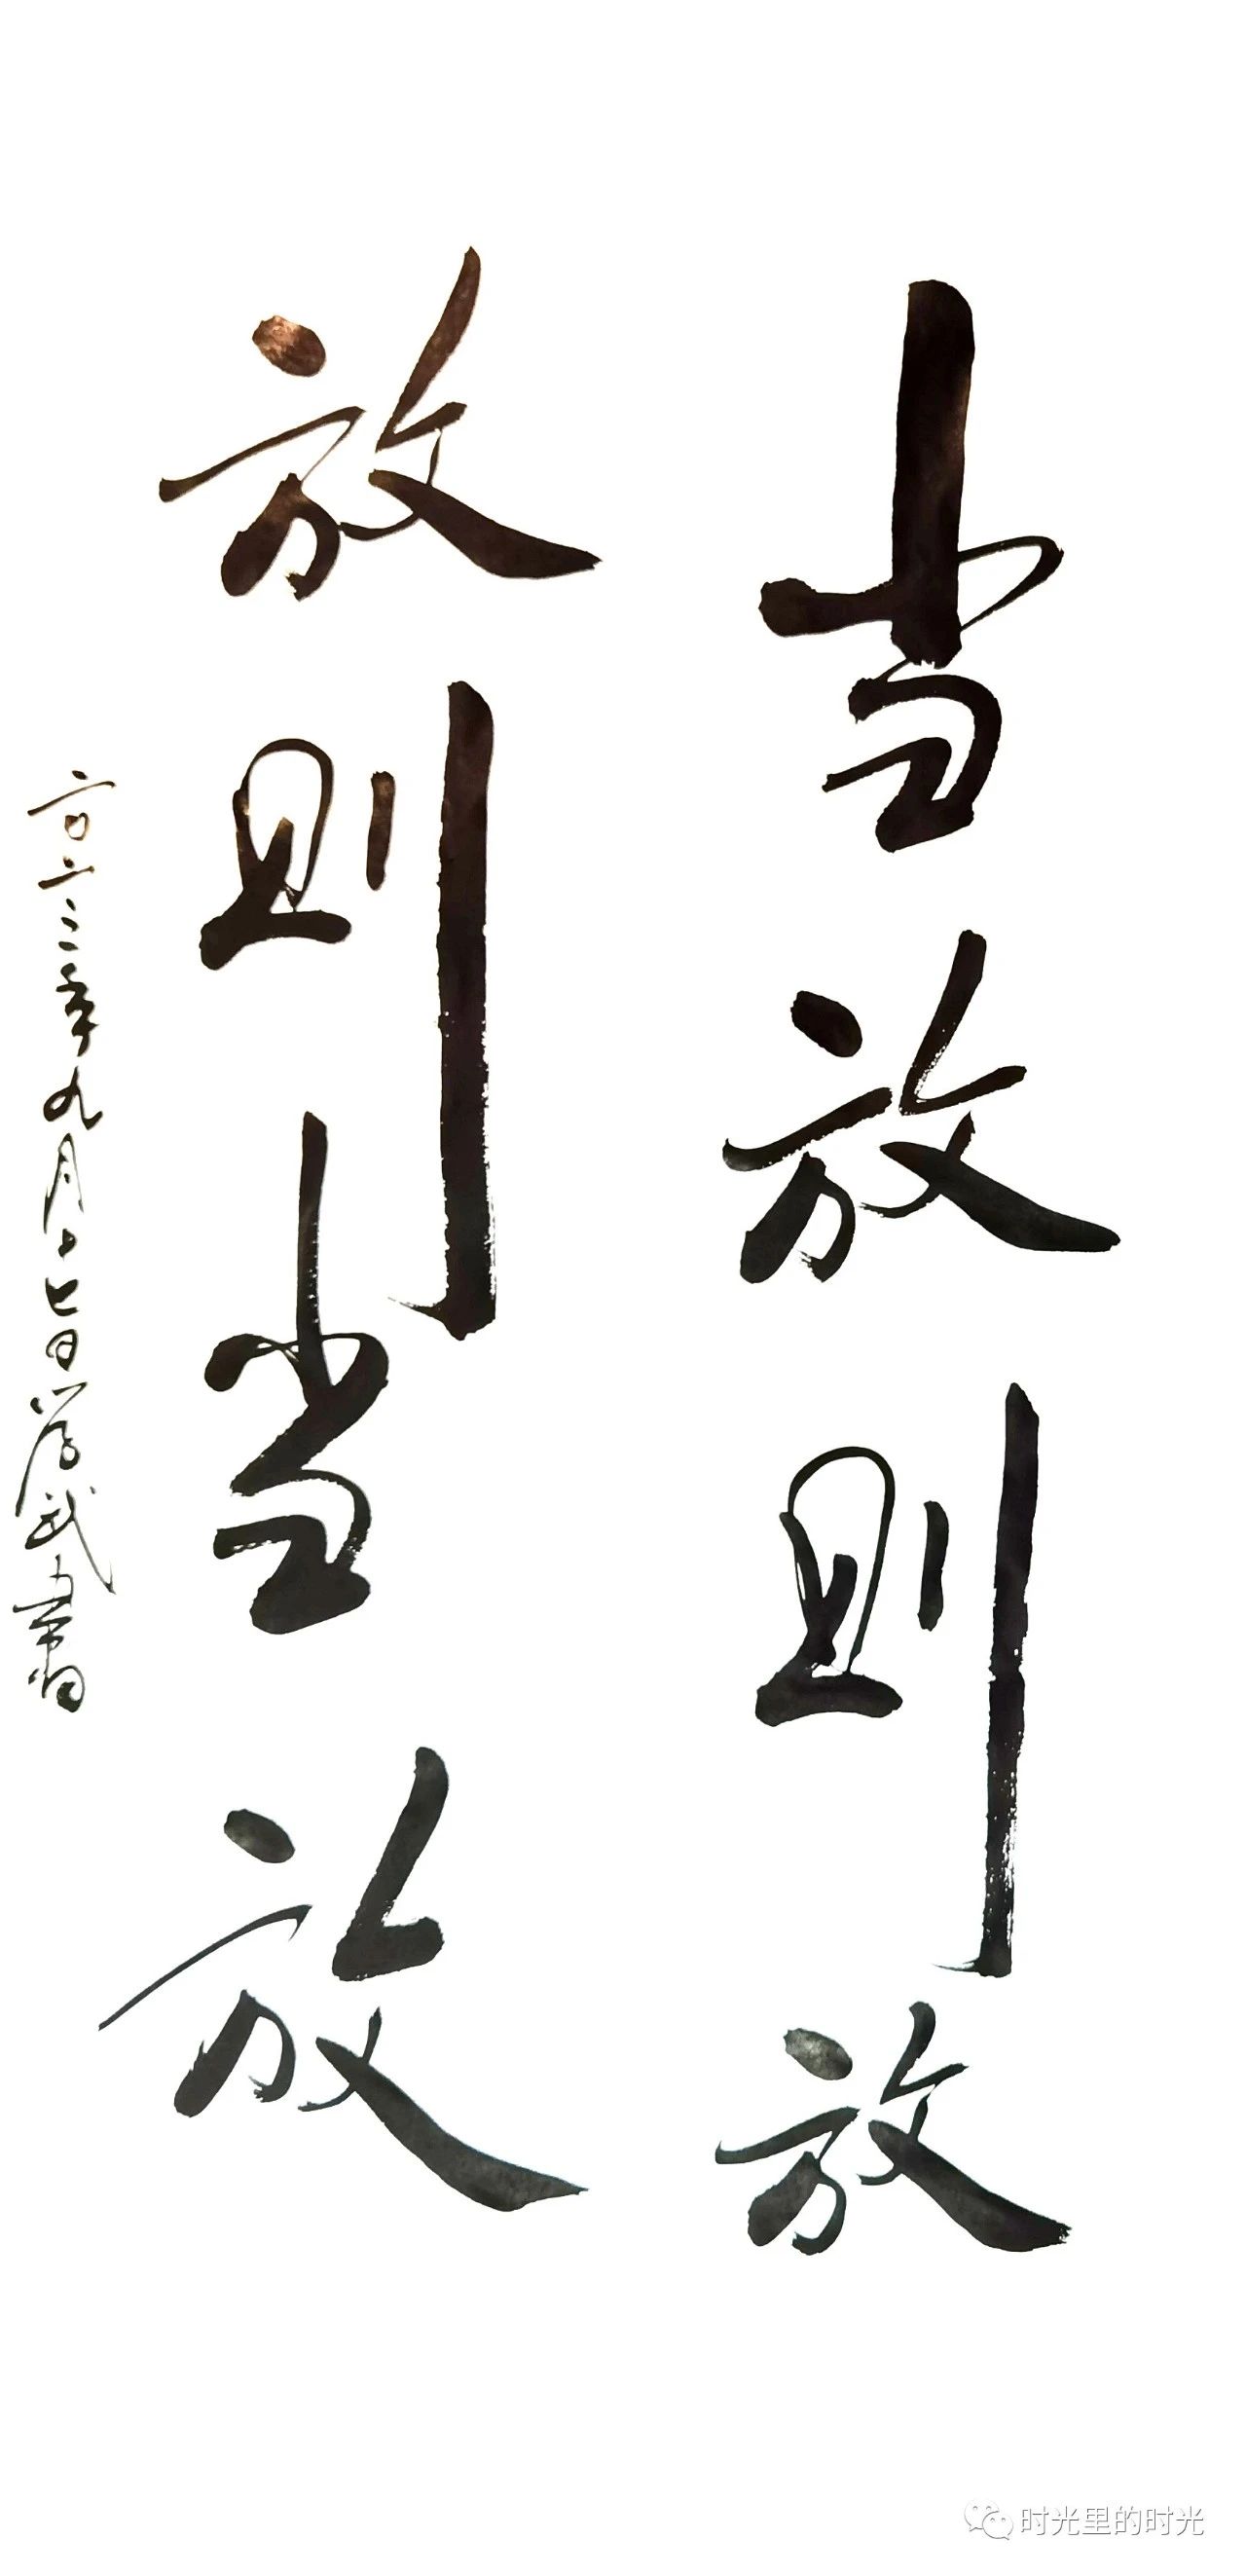 当放则放
放则当放
二〇二三年九月十七日学武书
时光里的时光